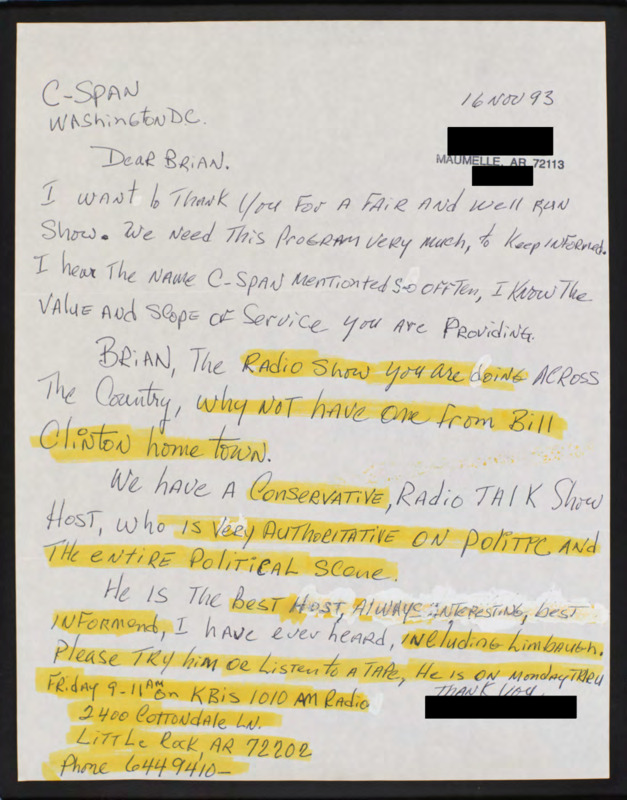 C-SPAN
WASHINGTON DC.
16 NOV 93
MAUMELLE, AR 72113
DEAR BRIAN.
I WANT to THANK YOU FOR A FAIR AND WELL RUN
SHOW. We NEED THIS PROGRAM VERY MUCH, to KEEP INFORMED.
I hear THE NAME C-SPAN MENTIONTED SO OFFTEN, I KNOW THE
VALUE AND SCOPE OF SERVICE YOU ARE PROVIDING.
BRIAN, THE RADIO SHOW YOU ARE DOING ACROSS
THE COUNTRY, WHY NOT HAVE ONE FROM BILL
CLINTON home town.
We HAVE A CONSERVATIVE, RADIO TALK SHOW
HOST, WHO IS VERY AUTHORITATIVE ON POLITIC AND
THE ENTIRE POLITICAL SCENE.
HE IS THE BEST HOST, ALWAYS INTERESTING, best
INFORMEND, I HAVE EVER HEARD, INCLUDING LIMBAUGH.
PLEASE TRY him OR LISTEN TO A TAPE, HE IS ON MONDAY THRU
FRIDAY 9-11 AM on KBIS 1010 AM RADIO
THANK YOU
2400 COTTONDALE LN.
LITTLE ROCK, AR 72202
PHONE 6449410-